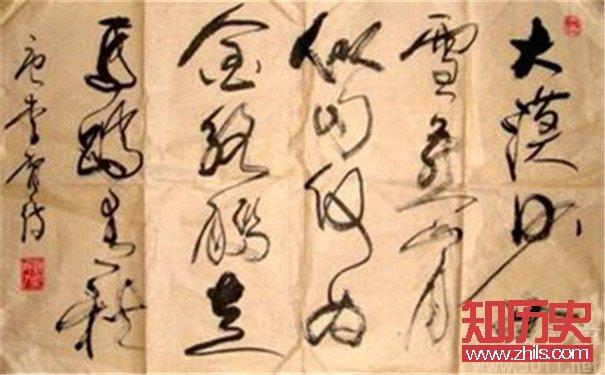 大漠沙如
雪燕山月
似钩何当
金络脑快
走踏清秋
唐李贺诗
知历史
www.zhils.com